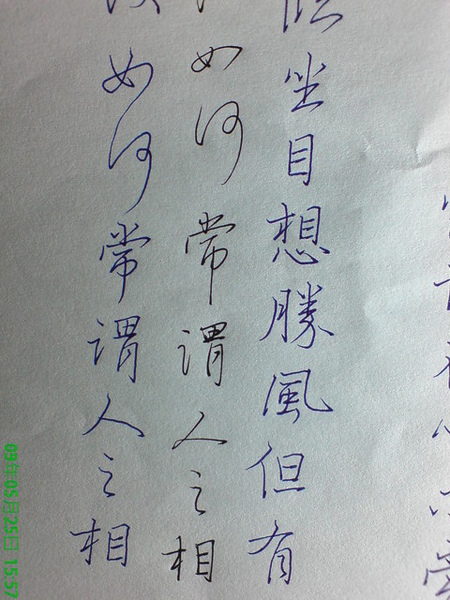 坐目想勝風但有
如何常謂人之相
如何常謂人之相
09年05月25日 15:57